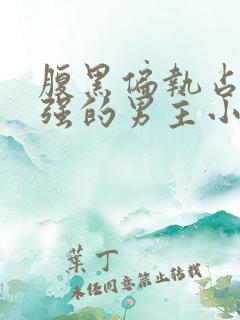 腹黑偏執占
强的男主小
葉丁
未经同意禁止转载